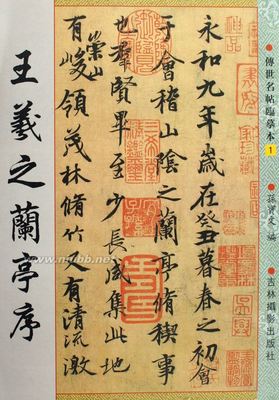 傳世名帖臨摹本 1
孫寶文 編
吉林攝影出版社
永和九年歲在癸丑暮春之初會
于會稽山陰之蘭亭脩稧事
也羣賢畢至少長咸集此地
有崇山峻領茂林脩竹又有清流激
王羲之蘭亭序